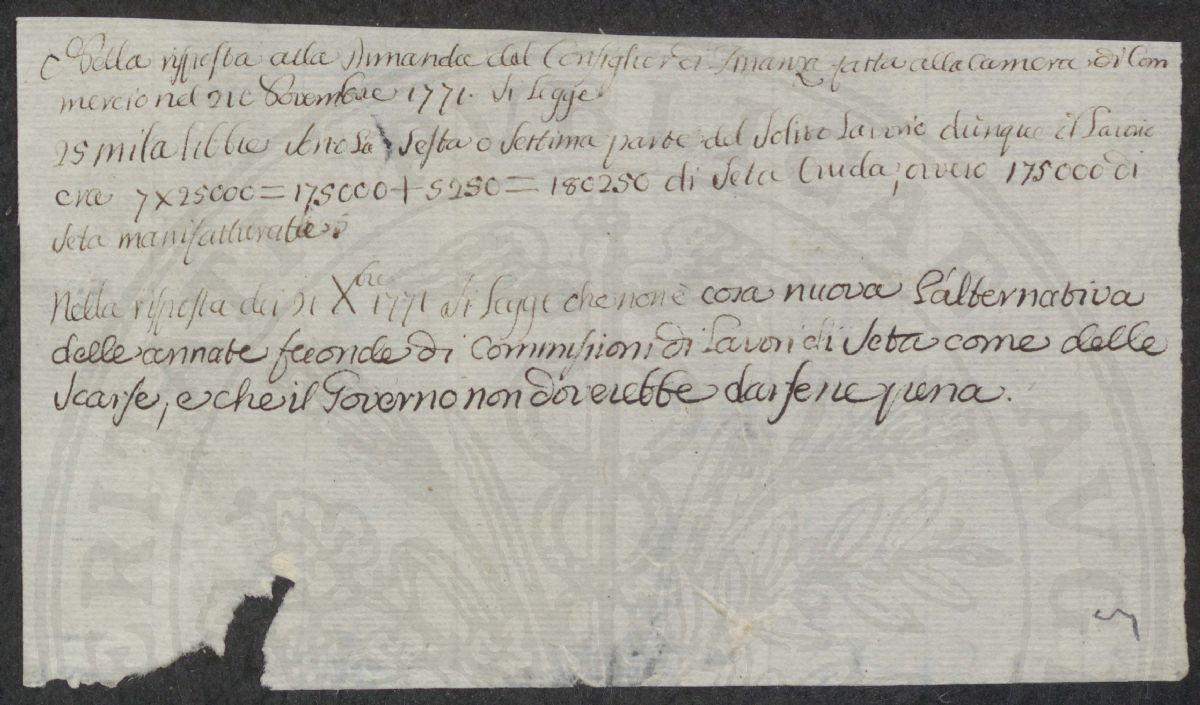 Nella risposta alla dimanda dal Consiglier di Finanza fatta alla Camera di Com
mercio nel 21 Novembre 1771. si legge
25 mila libbre sono la sesta o settima parte del solito Lavorio dunque il Lavorio
era 7 x 25000 = 175000 + 5250 = 180250 di seta Cruda, overo 175000 di
seta manifatturata.
Nella risposta dei 21 Xbre 1771 si legge che non è cosa nuova l'alternativa
delle annate feconde di Commissioni di Lavori di seta come delle
scarse, e che il Governo non doverebbe darsene pena.